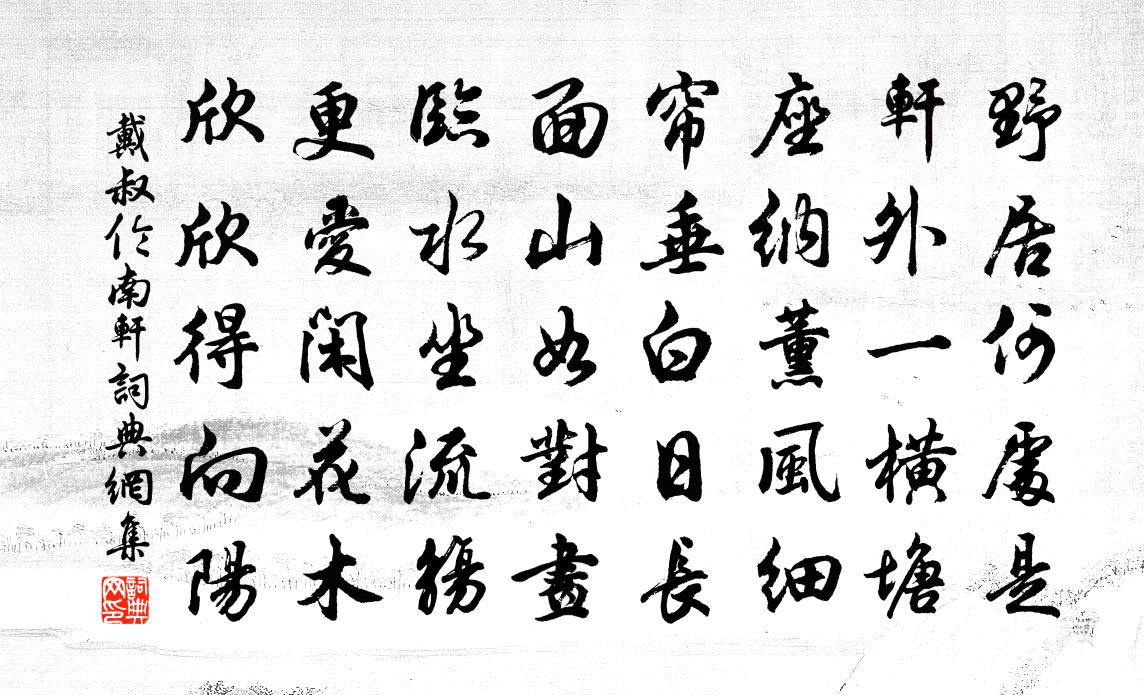 野居何處是
軒外一橫塘
座納薰風細
帘垂白日長
面山如對畫
臨水坐流觴
更愛閑花木
欣欣得向陽
戴叔伦南軒詞典網集
詞典网印